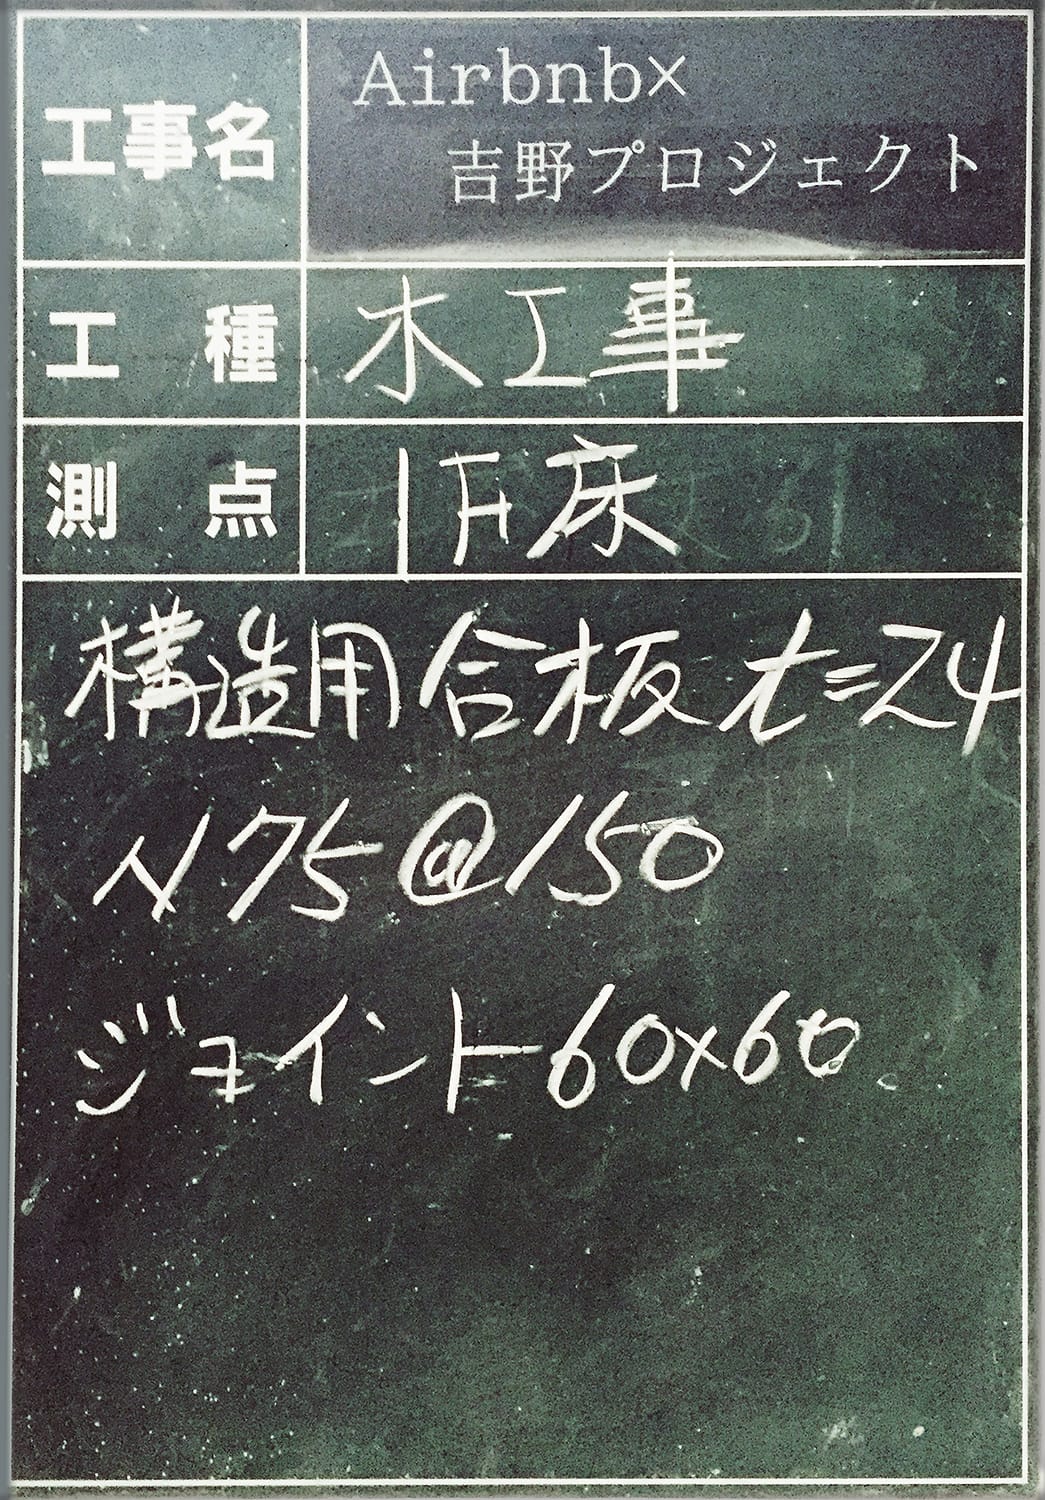 工事名 Airbnb×
吉野プロジェクト
工種 木工事
測点 1F床
構造用合板 t=24
N75@150
ジョイント60x60